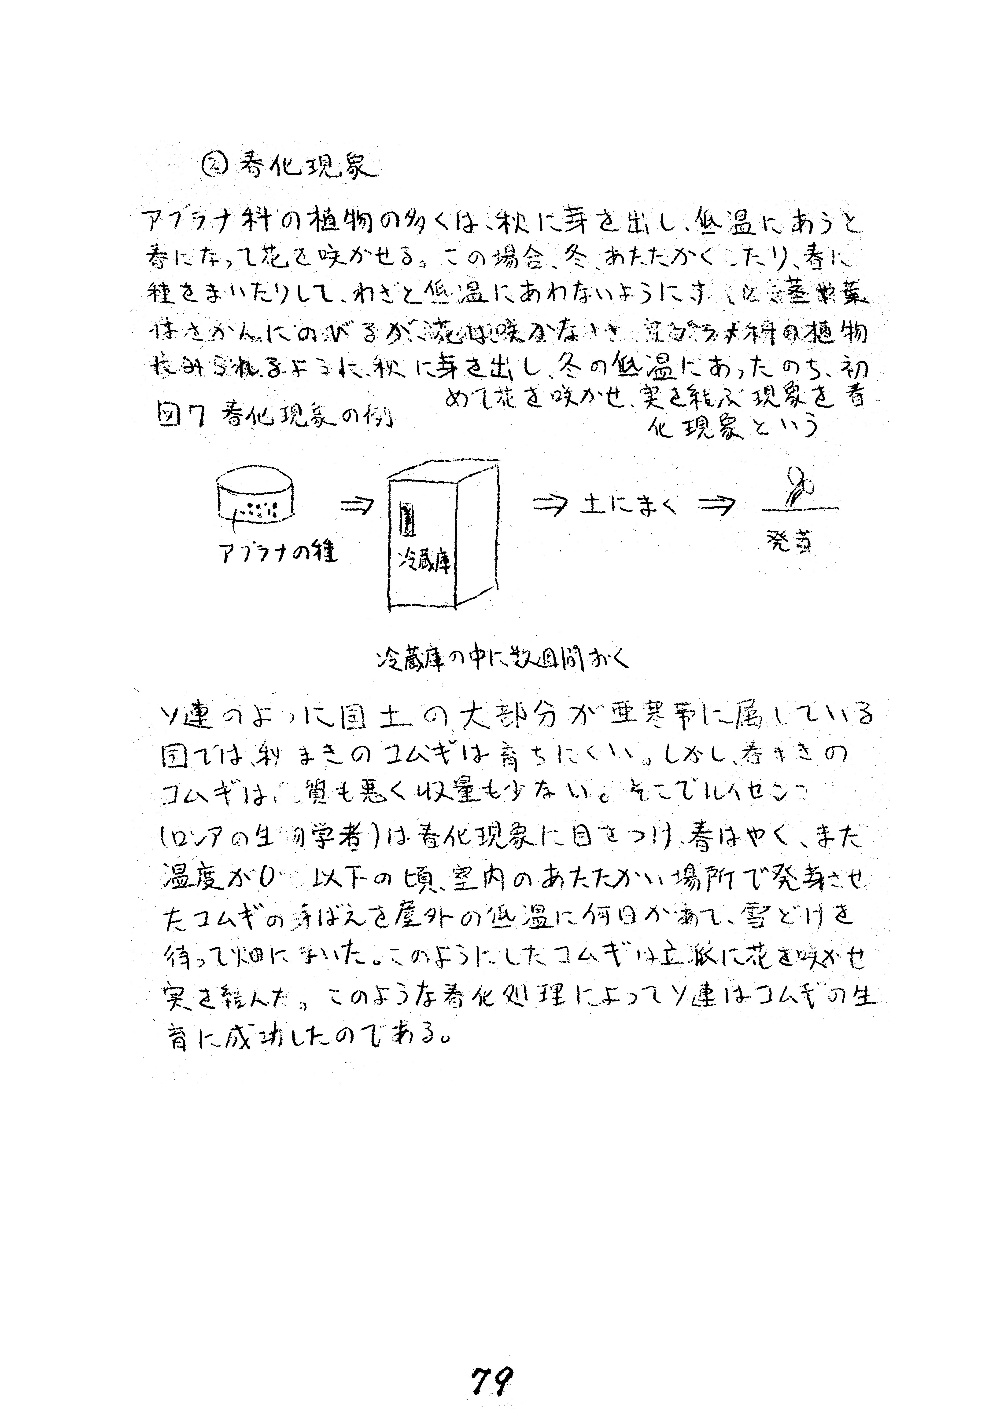 ② 春化現象
アブラナ科の植物の多くは、秋に芽を出し、低温にあうと
春になって花を咲かせる。この場合、冬、あたたかく たり、春に
種をまいたりして、わざと低温にあわないようにす と 茎や葉
はさかんにのびるが、花は咲かない アブラナ科の植物
にみられるように、秋に芽を出し、冬の低温にあったのち、初
めて花を咲かせ、実を結ぶ現象を春
化現象という
図7 春化現象の例
アブラナの種
冷蔵庫
⇒ 土にまく ⇒
発芽
冷蔵庫の中に数週間おく
ソ連のように国土の大部分が亜寒帯に属している
国では、秋まきのコムギは育ちにくい。しかし、春まきの
コムギは、質も悪く収量も少ない。そこでルイセンコ
(ロシアの生物学者)は春化現象に目をつけ、春はやく、まだ
温度が0 以下の頃、室内のあたたかい場所で発芽させ
たコムギの芽ばえを屋外の低温に何日かあて、雪どけを
待って畑にまいた。このようにしたコムギは立派に花を咲かせ
実を結んだ。このような春化処理によってソ連はコムギの生
育に成功したのである。
79